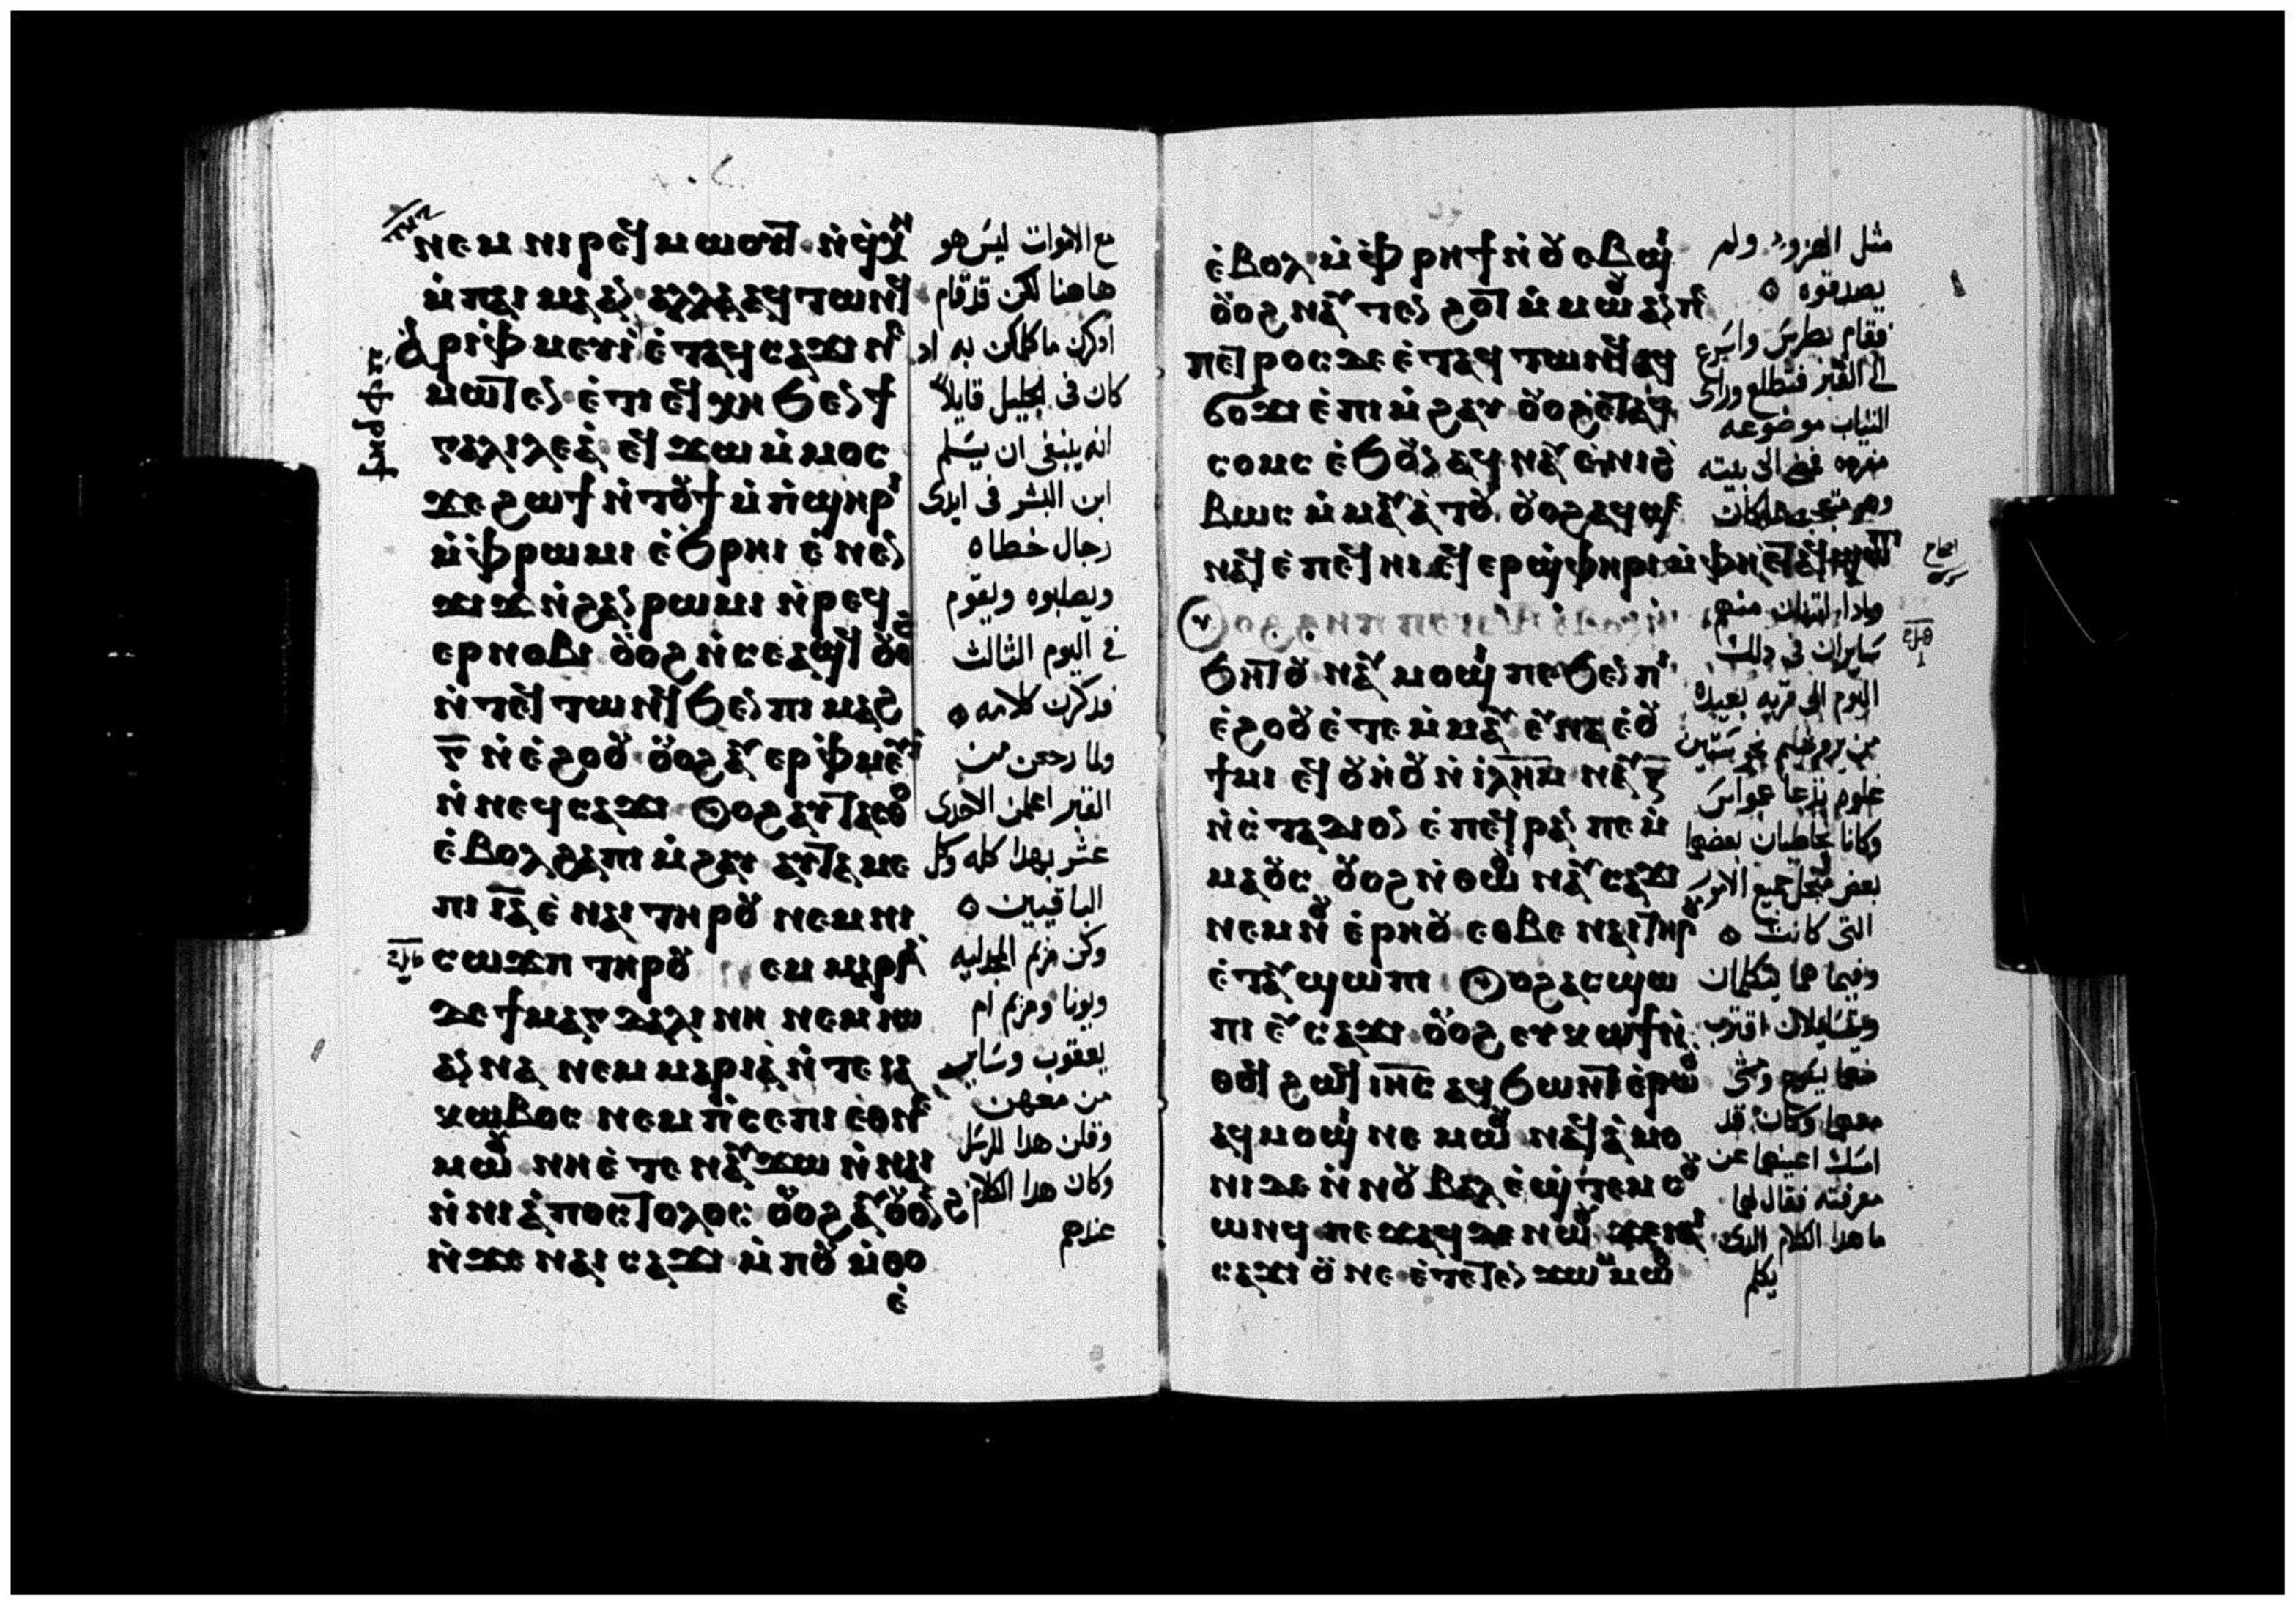 ⲛⲉⲙ ⲛⲓⲣⲉϥⲙⲱⲟⲩⲧ ⲛϥⲭⲏ
ⲙⲡⲁⲓ ⲙⲁ ⲁⲛ ⲁⲗⲗⲁ ⲁϥⲧⲱⲛϥ
ⲁⲣⲓⲫⲙⲉⲩⲓ ⲉⲧⲁϥⲥⲁϫⲓ ⲛⲉ
ⲙⲱⲧⲉⲛ ⲉⲧⲓ ⲉϥⲭⲏ ϧⲉⲛ ϯ
ⲅⲁⲗⲓⲗⲉⲁ ⲉϥϫⲱ ⲙⲙⲟⲥ
ϫⲉ ϩⲱϯ ⲛⲧⲟⲩϯ ⲙⲡϣⲏⲣⲓ
ⲙⲫⲣⲱⲙⲓ ⲉϧⲣⲏⲓ ⲉⲛⲉⲛ
ϫⲓϫ ⲛϩⲁⲛⲣⲱⲙⲓ ⲛⲣⲉϥ
ⲉⲣⲛⲟⲃⲓ ⲟⲩⲟϩ ⲛⲥⲉⲁϣϥ ⲟⲩⲟϩ
ⲛⲧⲉϥⲧⲱⲛϥ ϧⲉⲛ ⲡⲓⲙⲁϩ
ⲅ̅ ⲛⲉϩⲟⲟⲩ ⲟⲩⲟϩ ⲁⲩⲉⲣⲫⲙⲉⲩⲓ
ⲛⲛⲉϥⲥⲁϫⲓ ⲟⲩⲟϩ ⲁⲩⲧⲁⲥⲑⲟ
ⲉⲃⲟⲗ ϩⲁ ⲡⲓⲙϩⲁⲩ ⲁⲩⲧⲁⲙⲉ
ⲡⲓ ⲓ̅ⲁ̅ ⲉⲛⲁⲓ ⲧⲏⲣⲟⲩ ⲛⲉⲙ ⲛⲓ
ⲥⲱϫⲡ ⲧⲏⲣⲟⲩ ⲛⲉ ⲙⲁⲣⲓⲁ
ⲇⲉ ϯⲙⲁⲅⲇⲁⲗⲓⲛⲏ ⲛⲉⲙ ⲓⲱ
ⲁⲛⲛⲁ ⲛⲉⲙ ⲙⲁⲣⲓⲁ ⲛⲧⲉ ⲓⲁ
ⲕⲱⲃⲟⲥ ⲛⲉⲙ ⲡⲥⲉⲡⲓ ⲉⲑⲛⲉ
ⲙⲱⲟⲩ ⲛⲏ ⲉⲧⲉ ⲛⲁⲩϫⲱ ⲛⲛⲁⲓ
ⲛⲛⲓⲁⲡⲟⲥⲧⲟⲗⲟⲥ ⲟⲩⲟϩ ⲁⲩⲟⲩⲟⲛϩ
ⲛϫⲉ ⲛⲁⲓ ⲥⲁϫⲓ ⲙⲡⲟⲩⲙⲑⲟ
ⲉ
مع الاموات ليس هو
هاهنا لكن قد قام
اذكرن ما كلمكن به اد
كان فى الجليل قايلا
انه ينبغى ان يسلم
ابن البشر فى ايدى
رجال خطاه
ويصلبوه ويقوم
فى اليوم الثالث
فدكرن كلامه
ولما رجعن من
القبر اعلمن الاحدى
عشر بهدا كله وكل
الباقيين
وكن مريم المجدليه
ويونا ومريم ام
يعقوب وساير
من معهن
وقلن هدا للرسل
وكان هدا الكلام
عندهم
ⲉⲃⲟⲗ ⲙⲫⲣⲏϯ ⲛⲟⲩⲉⲃϣⲓ
ⲟⲩⲟϩ ⲛⲁⲩⲧⲉⲛϩⲟⲩⲧ ⲙⲙⲱⲟⲩ ⲁⲛ ⲡⲉ
ⲡⲉⲧⲣⲟⲥ ⲇⲉ ⲉⲧⲁϥⲧⲱⲛϥ ⲁϥ
ϭⲟϫⲓ ⲉⲡⲓⲙϩⲁⲩ ⲟⲩⲟϩ ⲉⲧⲁϥ
ⲥⲟⲙⲥ ⲉϧⲟⲩⲛ ⲁϥⲛⲁⲩ ⲉⲛⲓϩ
ⲃⲱⲥ ⲙⲙⲁⲩⲁⲧⲟⲩ ⲟⲩⲟϩ ⲁϥϣⲉ
ⲛⲁϥ ⲉⲡⲉϥⲏⲓ ⲉϥⲉⲣϣⲫⲏⲣⲓ ⲙⲫⲏ ⲉⲧⲁϥϣⲱⲡⲓ
ϧⲏⲧⲟⲩ ⲛⲁⲩⲙⲟϣⲓ ⲡⲉ ϧⲉⲛ ⲡⲓ
ⲉϩⲟⲟⲩ ⲉⲧⲉⲙⲙⲁⲩ ⲉⲩⲛⲁ ⲉⲟⲩ
ϯⲙⲓ ⲉϥⲟⲩⲏⲟⲩ ⲛⲓⲗⲏⲙ ⲛⲁⲩ ⲝ̅
ⲛⲥⲧⲁⲇⲓⲟⲛ ⲉⲡⲉϥⲣⲁⲛ ⲡⲉ ⲙ
ⲙⲁⲟⲩⲥ ⲟⲩⲟϩ ⲛⲑⲱⲟⲩ ⲛⲁⲩⲥⲁϫⲓ
ⲛⲉⲙ ⲛⲟⲩⲉⲣⲏⲟⲩ ⲉⲑⲃⲉ ⲛⲁⲓ ⲧⲏⲣⲟⲩ
ⲉⲧⲁⲩϣⲱⲡⲓ ⲟⲩⲟϩ ⲁⲥϣⲱ
ⲡⲓ ⲉⲩⲥⲁϫⲓ ⲟⲩⲟϩ ⲉⲩⲕⲱϯ ⲛ
ⲑⲟϥ ϩⲱϥ ⲓⲏ̅ⲥ̅ ⲁϥϧⲱⲛⲧ ⲉⲣⲱⲟⲩ
ⲁϥⲙⲟϣⲓ ⲛⲉⲙⲱⲟⲩ ⲛⲁϥⲁⲙⲟ
ⲛⲓ ⲇⲉ ⲛⲛⲟⲩⲃⲁⲗ ⲉϣⲧⲉⲙⲥⲟⲩ
ⲱⲛϥ ⲡⲉϫⲁϥ ⲇⲉ ⲛⲱⲟⲩ ϫⲉ ⲛⲁⲓ
ⲥⲁϫⲓ ⲟⲩ ⲛⲉ ⲉⲧⲉⲧⲉⲛϫⲱ ⲙⲙⲱⲟⲩ
مثل الهزو ولم
يصدقوه
فقام بطرس واسرع
الى القبر فتطلع وراى
الثياب موضوعه
مفرده فمضى الى بيته
وهو متعجب مما كان
وادا اثنان منهم
سايران فى دلك
اليوم الى قريه بعيده
من يروشليم نحو ستين
غلوه تدعا عمواس
وكانا يخاطبان بعضهما
بعض من اجل جميع الامور
التى كانت
وفيما هما يتكلمان
ويتسايلان اقترب
منهما يسوع ومشى
معهما وكان قد
امسك اعينهما عن
معرفته فقال لهما
ما هدا الكلام الدى
يكلم